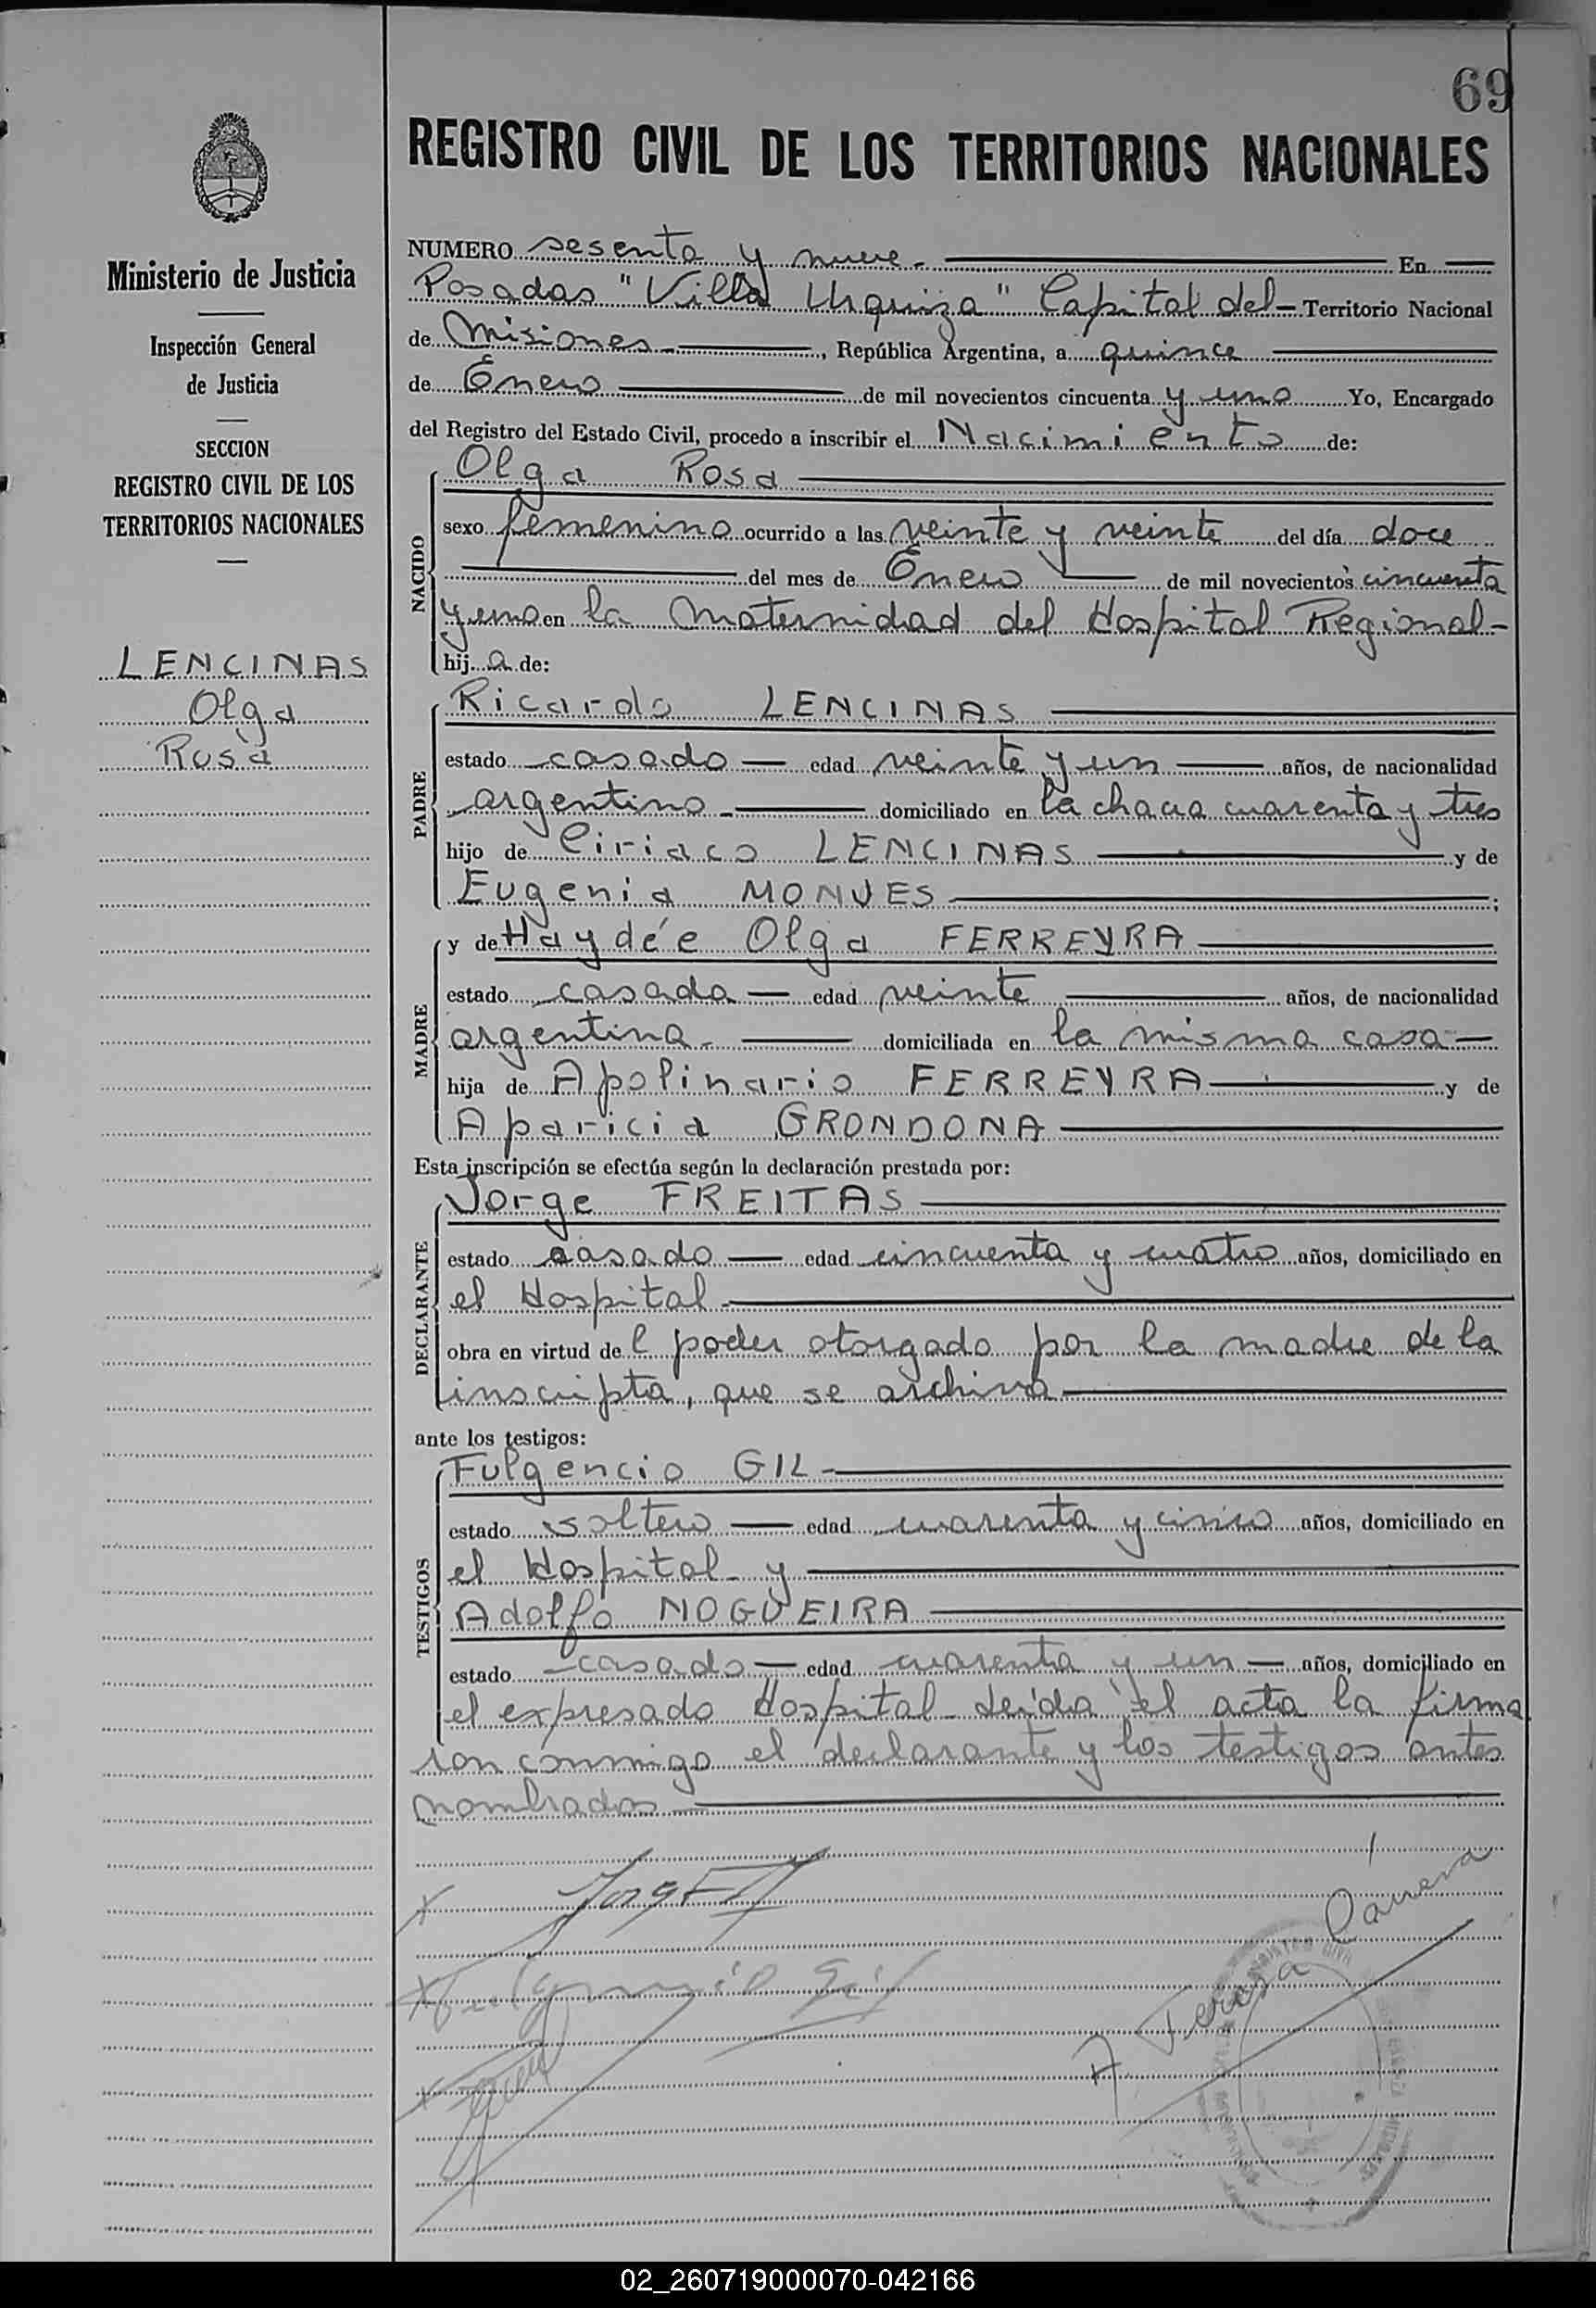 69
REGISTRO CIVIL DE LOS TERRITORIOS NACIONALES
Ministerio de Justicia
Inspección General
de Justicia
SECCION
REGISTRO CIVIL DE LOS
TERRITORIOS NACIONALES
LENCINAS
Olga
Rosa
NUMERO sesenta y nueve.- En
Posadas "Villa Urquiza" Capital del- Territorio Nacional
de Misiones.- , República Argentina, a quince
de Enero de mil novecientos cincuenta y uno Yo, Encargado
del Registro del Estado Civil, procedo a inscribir el Nacimiento de:
NACIDO
Olga Rosa
sexo femenino ocurrido a las veinte y veinte del día doce
del mes de Enero de mil novecientos cincuenta
y uno en la Maternidad del Hospital Regional-
hij a de:
PADRE
Ricardo LENCINAS
estado casado edad veinte y un años, de nacionalidad
argentino domiciliado en la chacra cuarenta y tres
hijo de Ciriaco LENCINAS y de
Eugenia MONVES ;
MADRE
y de Haydée Olga FERREYRA
estado casada edad veinte años, de nacionalidad
argentina.- domiciliada en la misma casa-
hija de Apolinario FERREYRA y de
Aparicia GRONDONA
Esta inscripción se efectúa según la declaración prestada por:
DECLARANTE
Jorge FREITAS
estado casado edad cincuenta y cuatro años, domiciliado en
el Hospital
obra en virtud de l poder otorgado por la madre de la
inscripta, que se archiva
ante los testigos:
TESTIGOS
Fulgencio GIL-
estado soltero edad cuarenta y cinco años, domiciliado en
el Hospital y
Adolfo NOGUEIRA
estado casado edad cuarenta y un años, domiciliado en
el expresado Hospital- Leída el acta la firma
ron conmigo el declarante y los testigos antes
nombrados
Fulgencio Gil
A Teresa Carrera
02_260719000070-042166